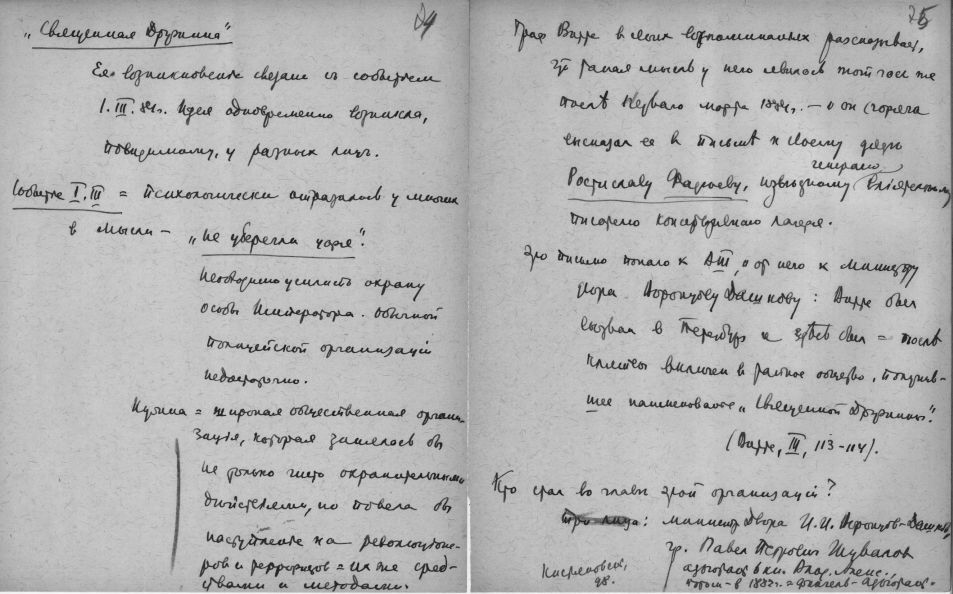 24
„Священная Дружина“
Ея возникновение связано съ событием
1.III.81г. Идея одновременно возникла,
повидимому, у разных лицъ.
Событие I.III = психологически отразилось у многих
в мысли – „не уберегли царя“.
Необходимо усилить охрану
особы Императора. Обычной
полицейской организаціи
недостаточно.
Нужна = широкая общественная органи-
зація, которая занялась бы
не только чисто охранительными
действиями, но повела бы
наступление на революціоне-
ров и террористов = их же сред-
ствами и методами.
25
Граф Витте в своих воспоминаниях рассказывает,
что такая мысль у него явилась тотчас же
послѣ первого марта 1881г. – и он сгоряча
высказал ее в письмѣ к своему дядѣ
генералу
Ростиславу Фадѣеву, извѣстному
писателю консервативного лагеря.
Это письмо попало к АIII, и от него к Министру
двора Воронцову Дашкову: Витте был
вызван в Петербург и здѣсь был = послѣ
клятвы включен в тайное общество, получив-
шее наименование „Священной Дружины“.
(Витте, III, 113-114).
Кто стал во главѣ этой организаціи?
три лица: министр Двора И.И. Воронцов-Дашков,
гр. Павел Петрович Шувалов
адъютант в.кн. Влад. Алекс.,
потом – в 1882г. = флигель-адъютант.